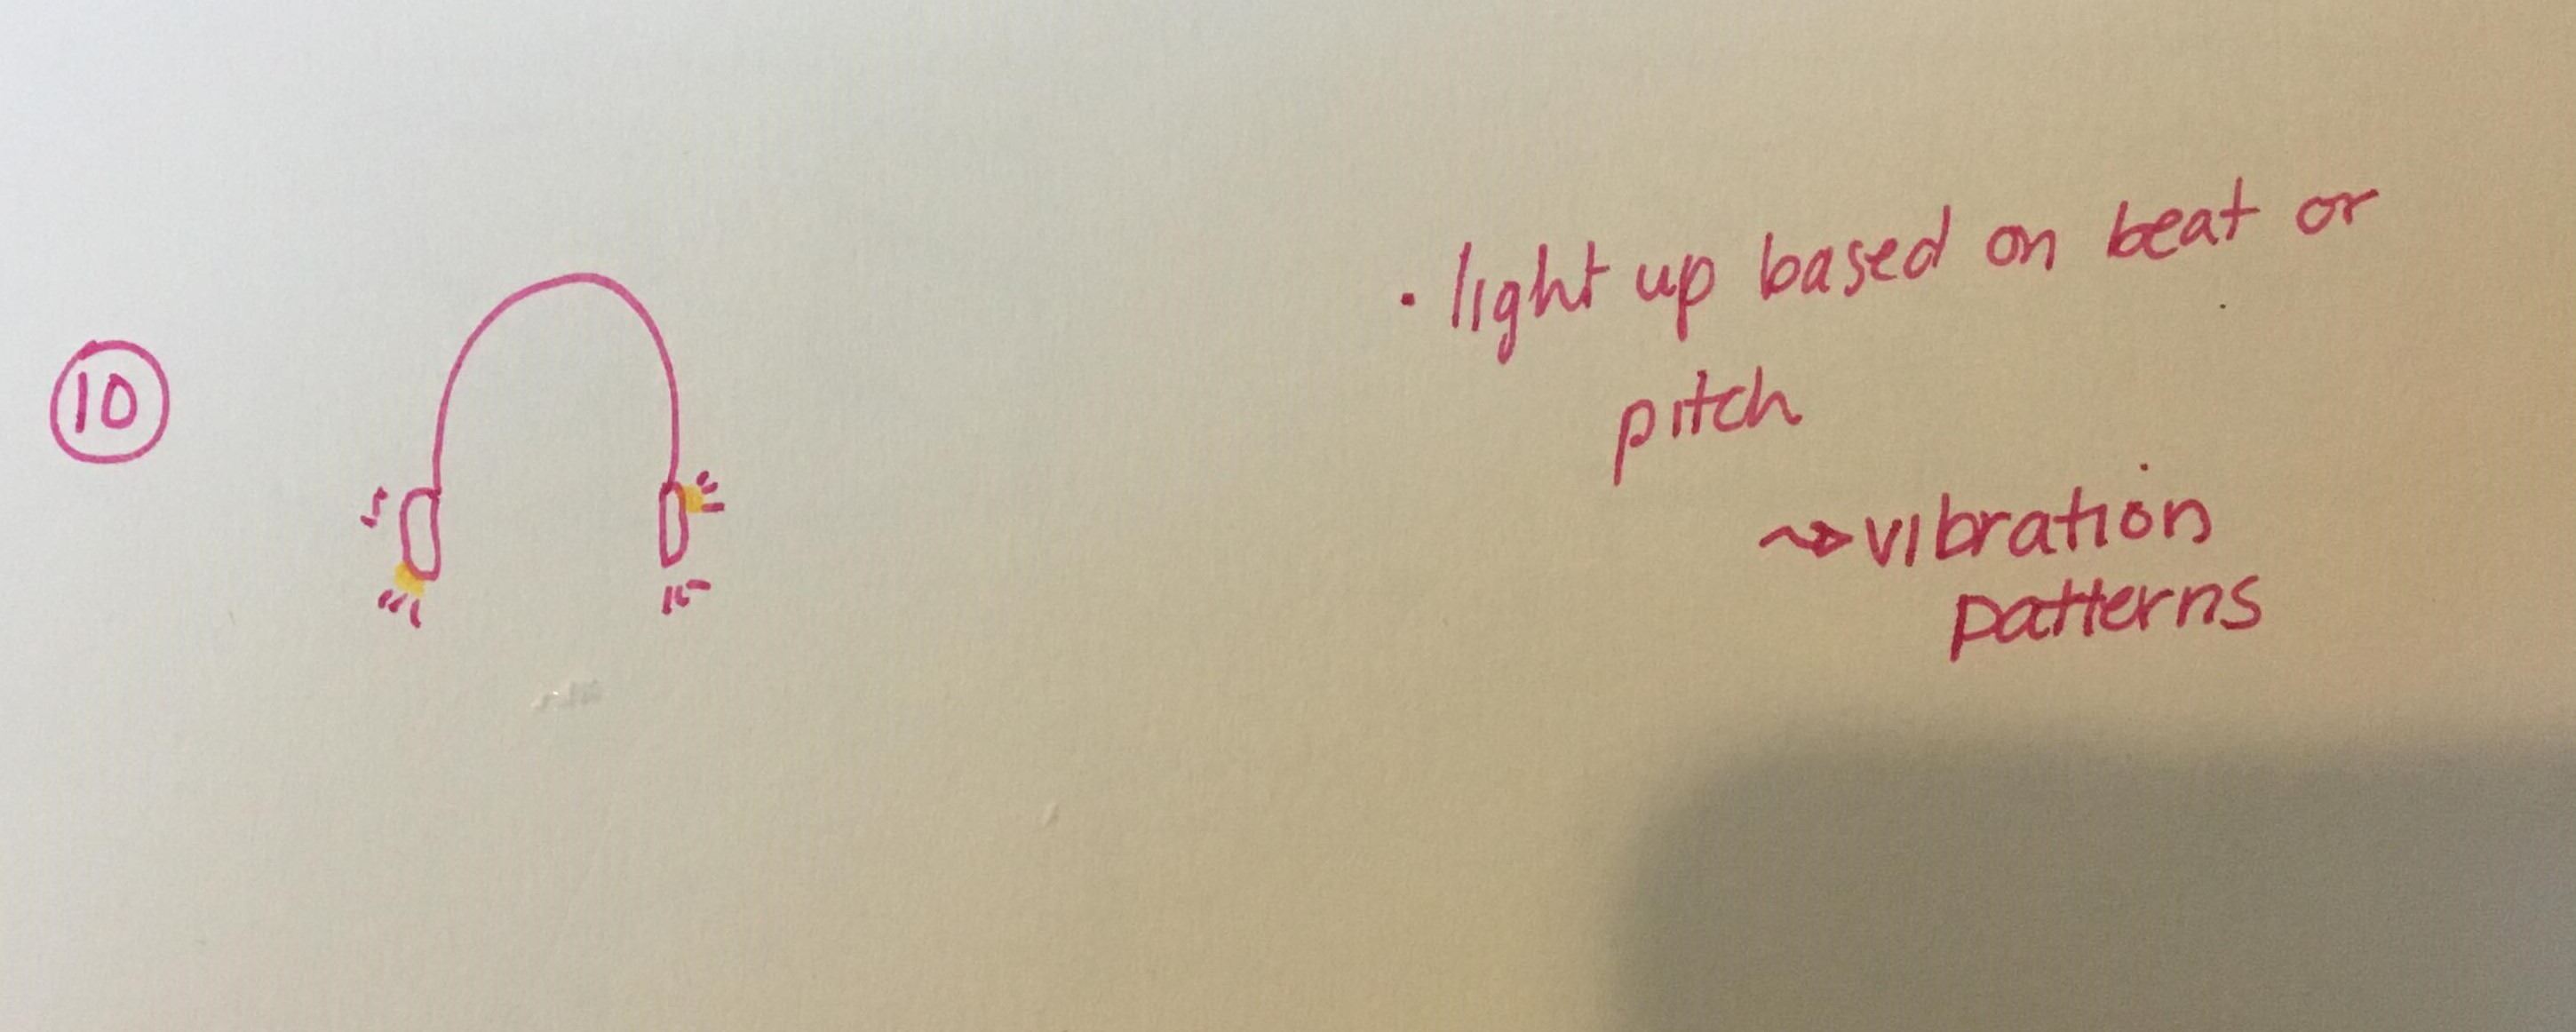 10
· light up based on beat or
pitch
⇝ vibration
patterns